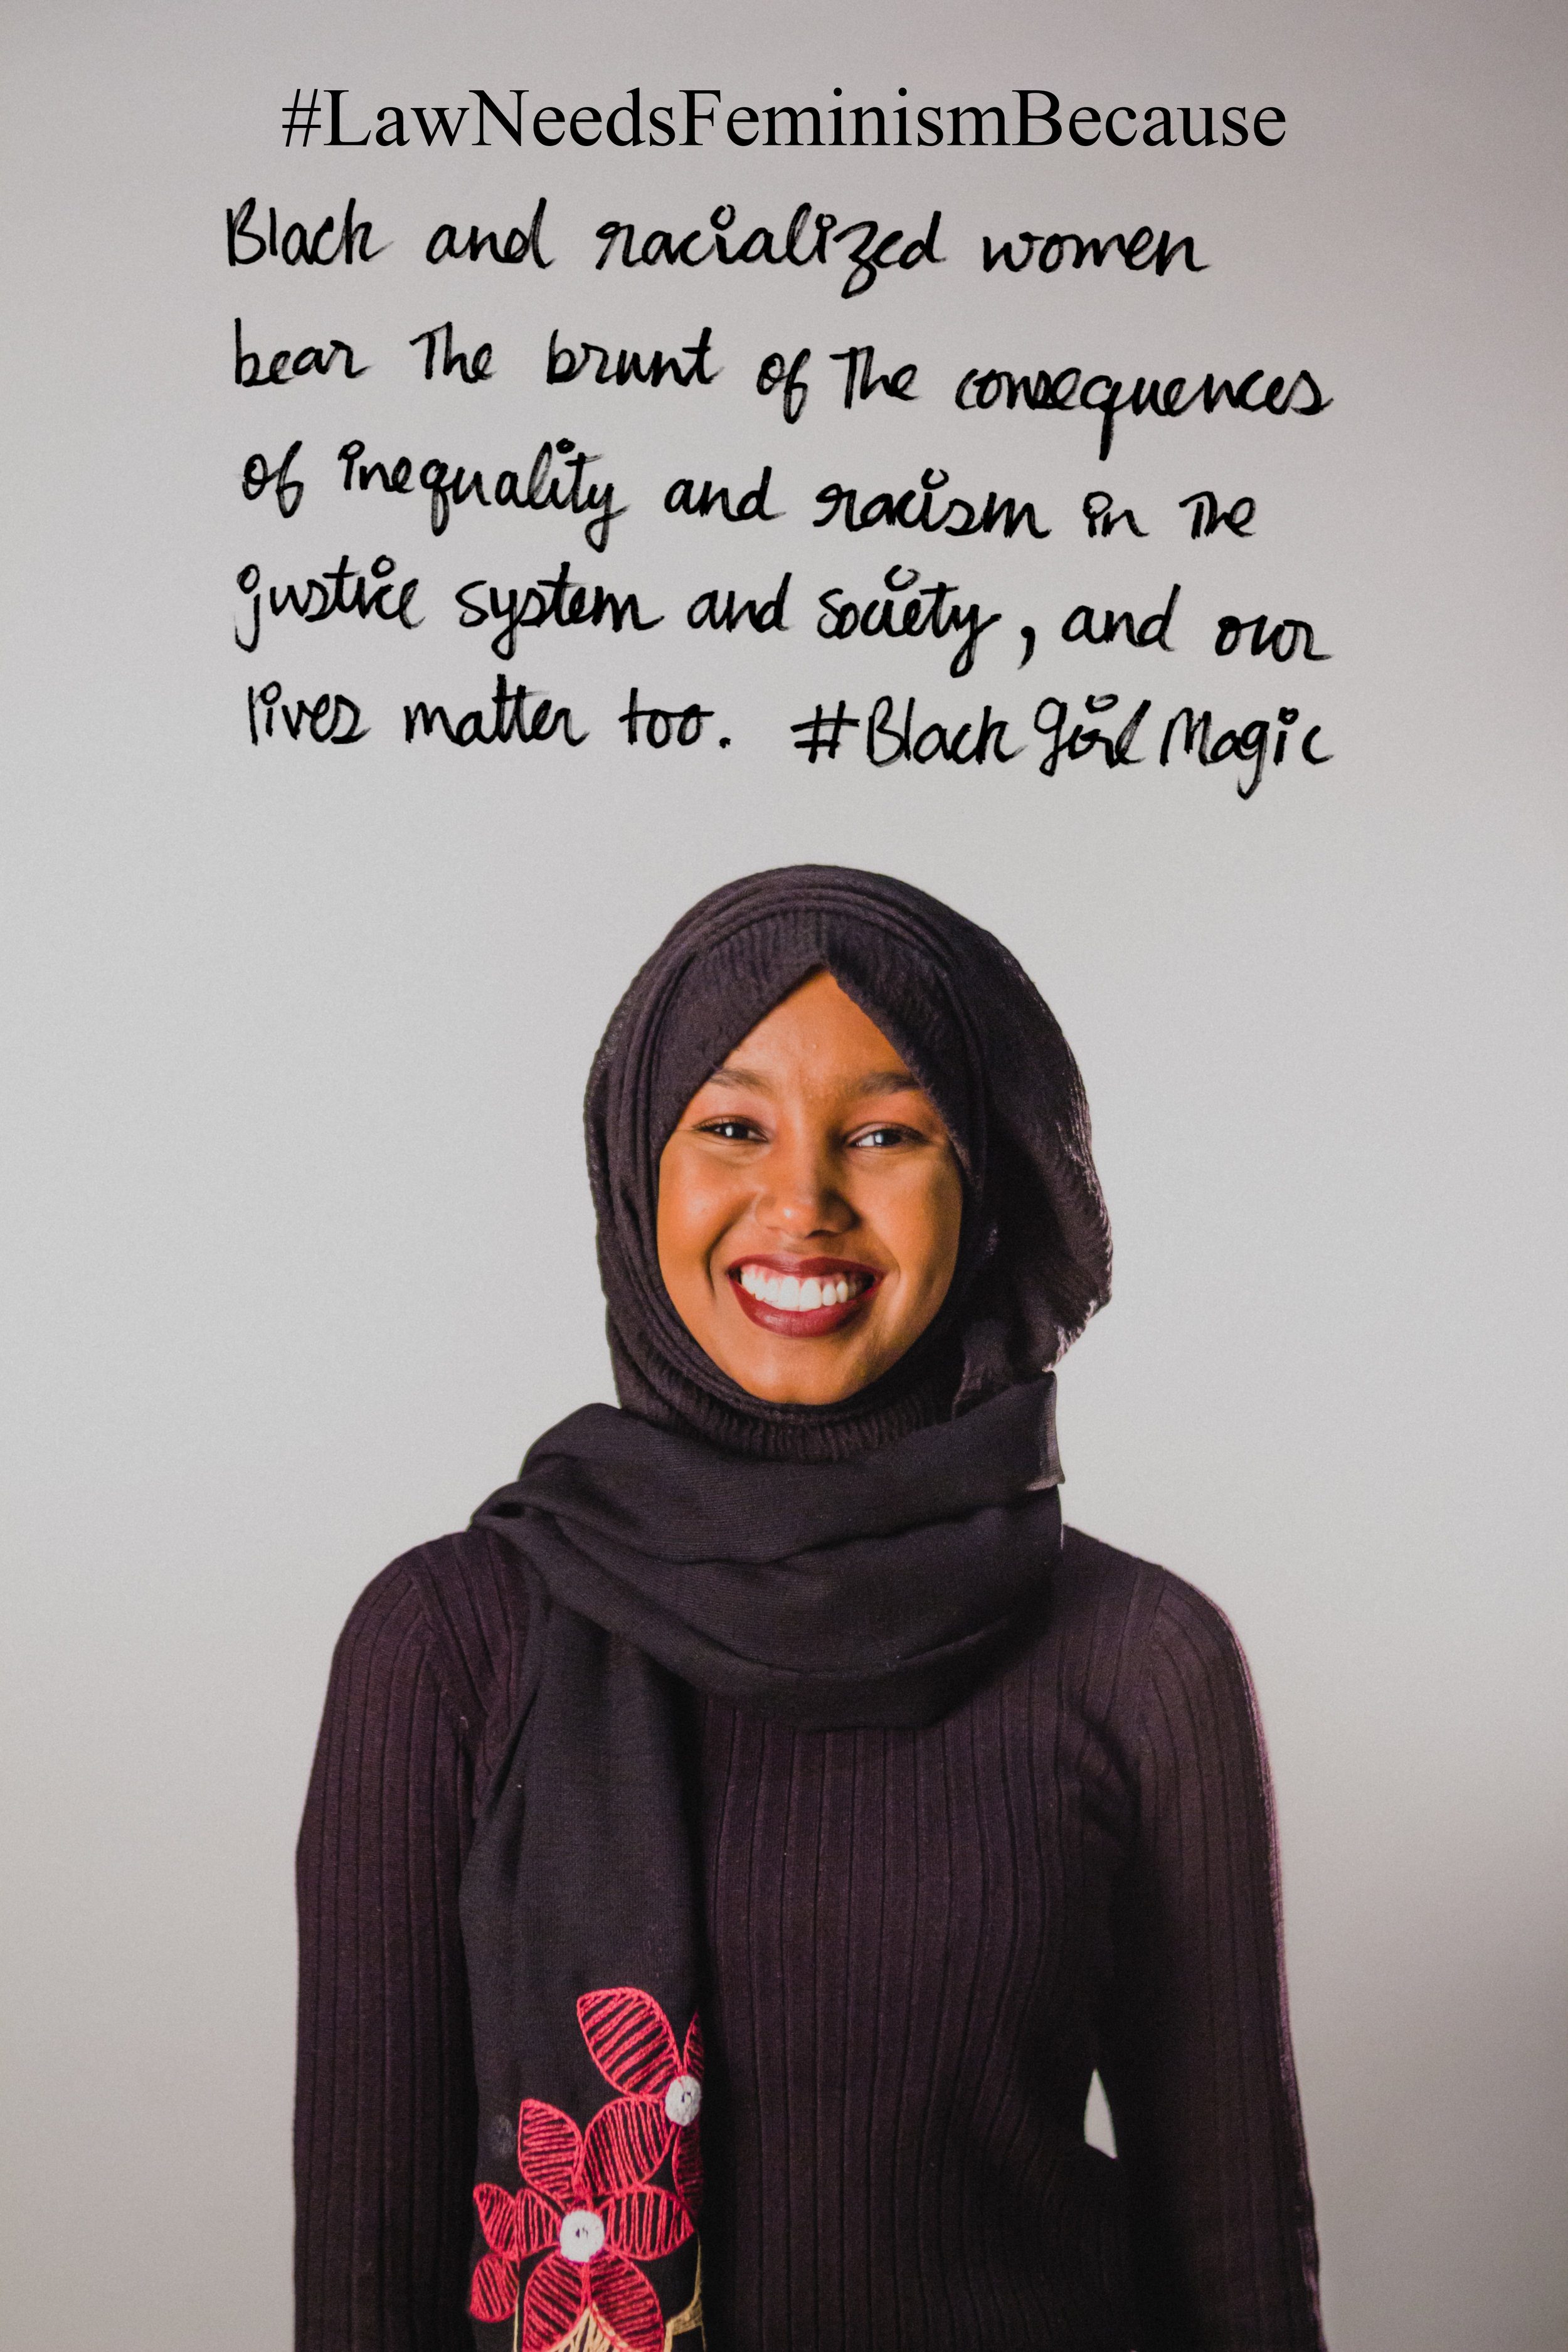 #LawNeedsFeminismBecause
Black and racialized women
bear the brunt of the consequences
of inequality and racism in the
justice system and society, and our
lives matter too. #BlackGirlMagic